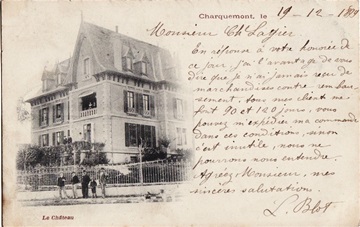 Charquemont, le 19-12-1901
Monsieur Ch Lassier
En réponse à votre honorée de
ce jour, j'ai l'avantage de vous
dire que je n'ai jamais reçu de
marchandises contre rembour-
sement, tous mes clients me
font 90 et 120 jours, vous
pouvez m'expédier ma commande
dans ces conditions, sinon
c'est inutile, nous ne
pourrons nous entendre.
Agréez Monsieur, mes
sincères salutations.
L. Blot
Le Château